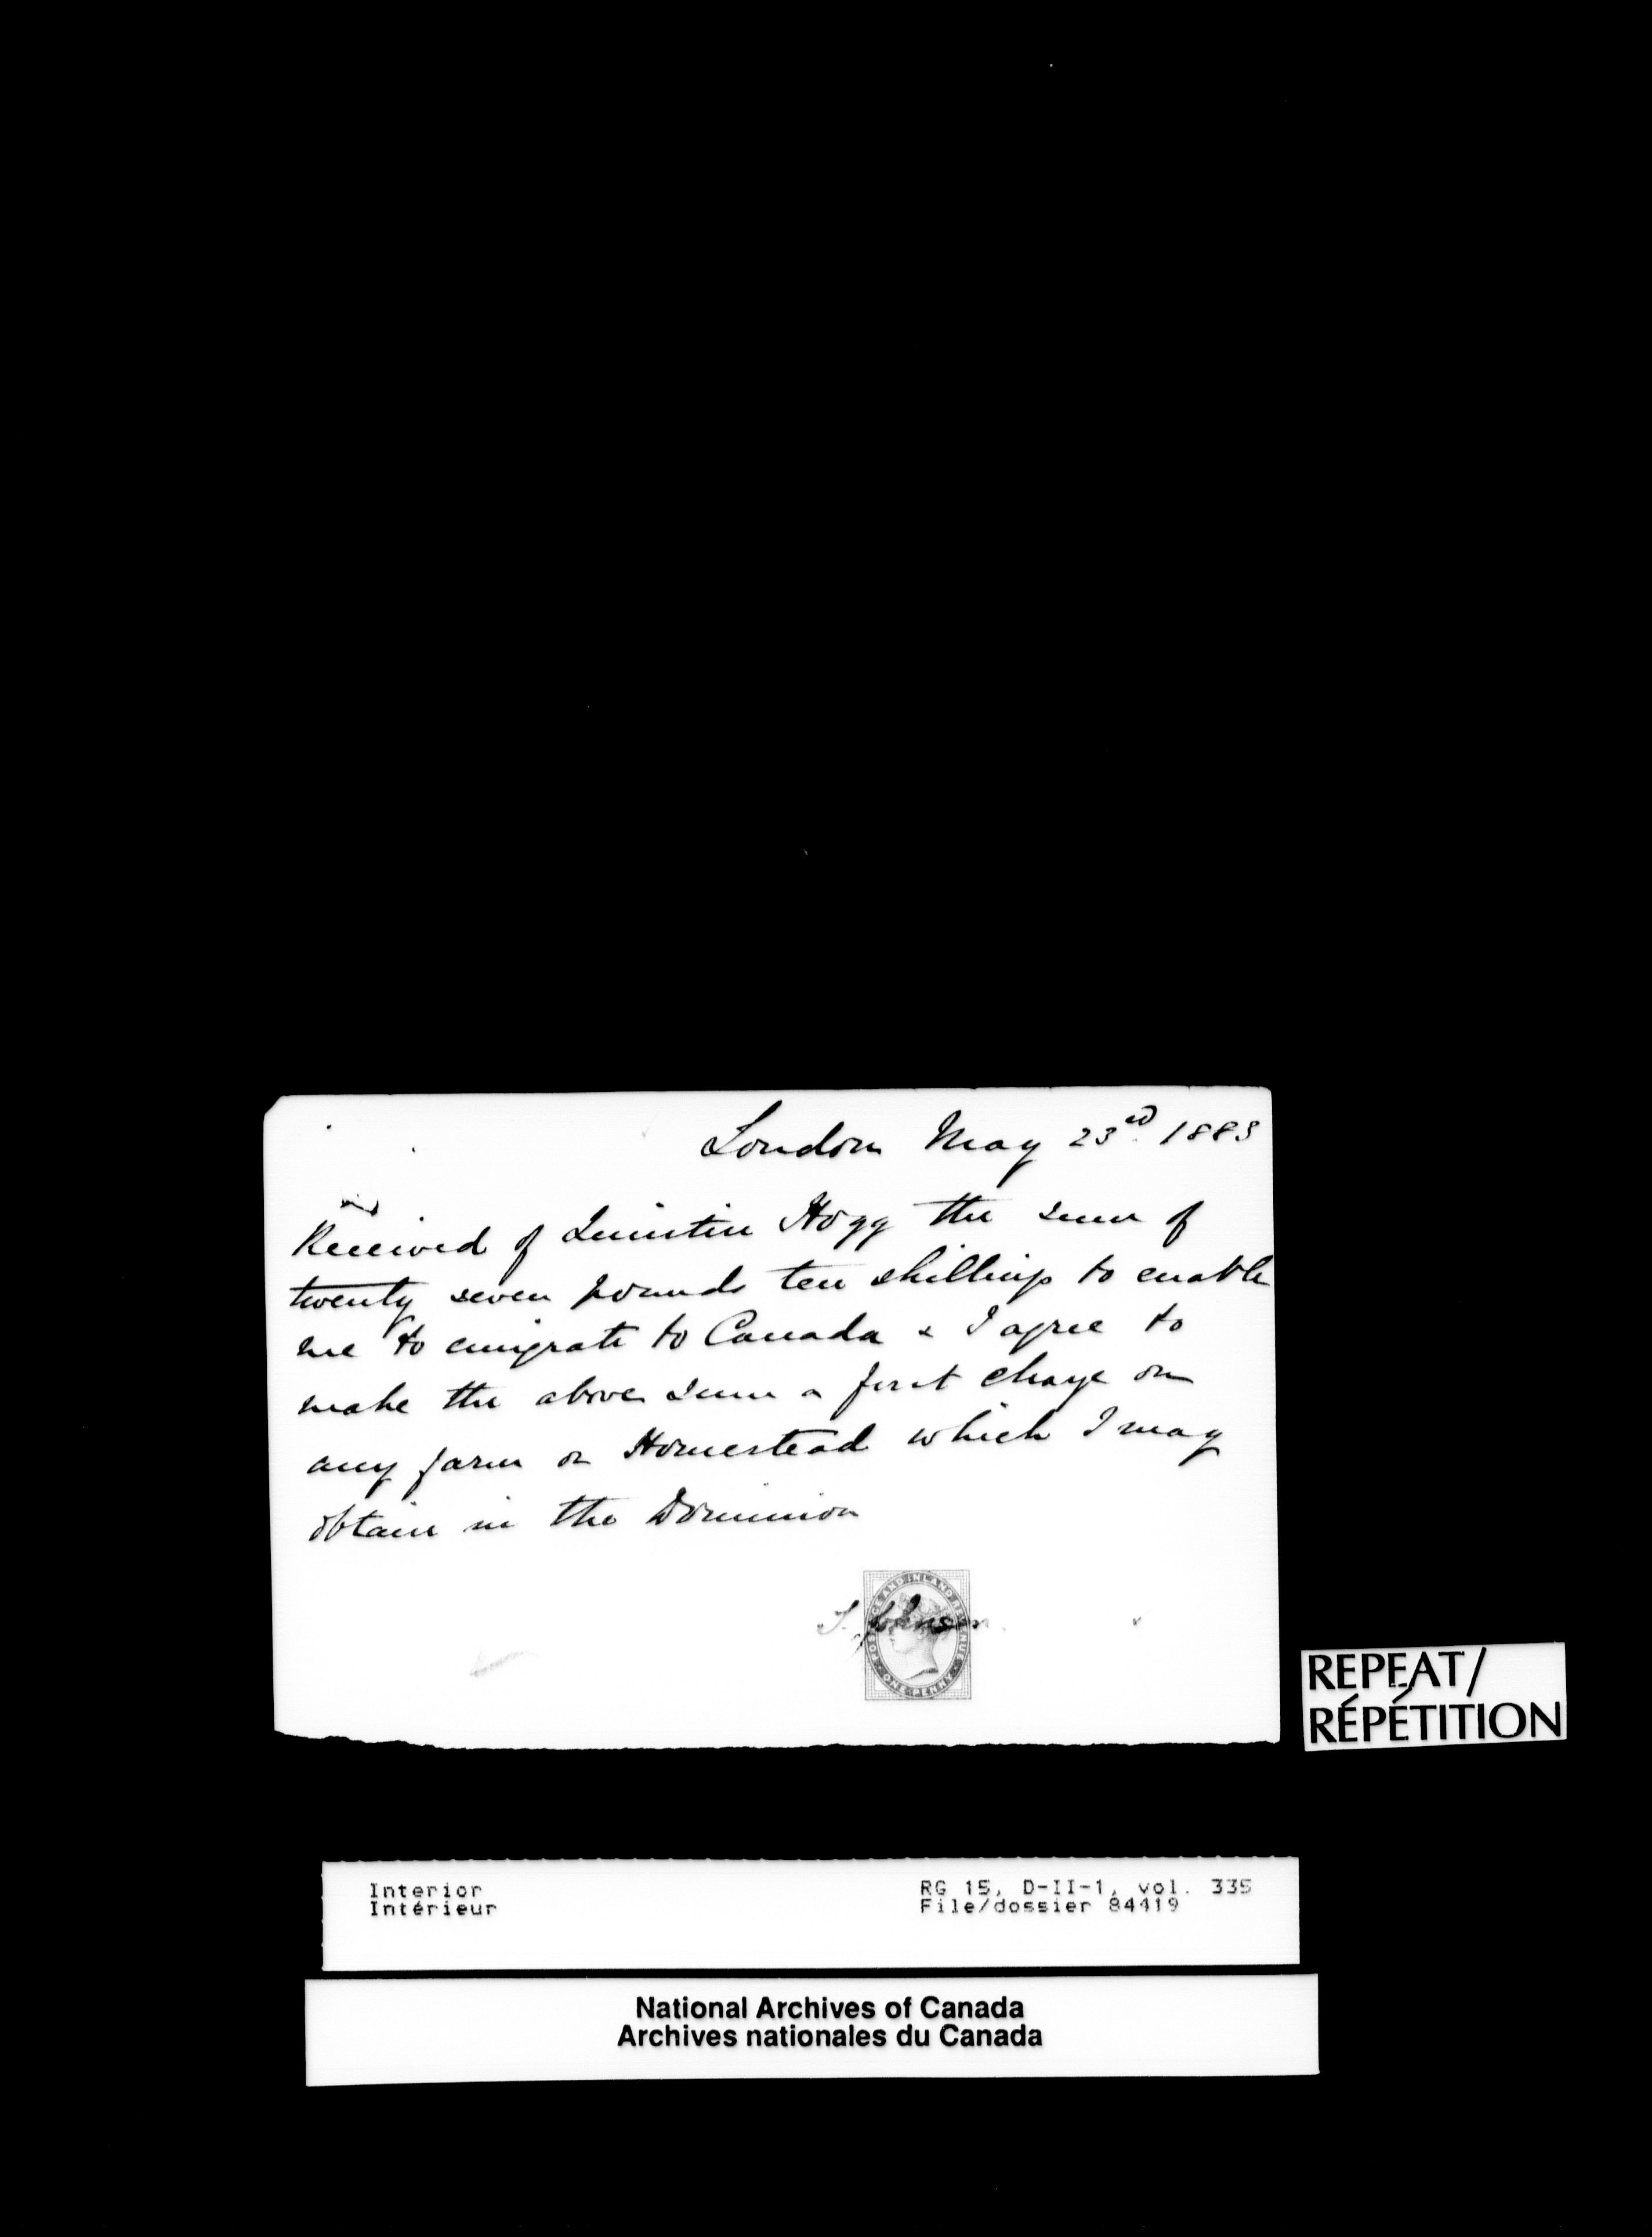 London May 23rd. 1883
Received of Quintin Hogg the sum of
twenty seven pounds ten shillings to enable
me to emigrate to Canada & I agree to
make the above sum a first charge on
any farm or Homestead which I may
obtain in the Dominion
POSTAGE AND INLAND REVENUE
S. Johnson
ONE PENNY
REPEAT/
RÉPÉTITION
Interior RG 15, D-II-1, vol. 335
Intérieur File/dossier 84419
National Archives of Canada
Archives nationales du Canada